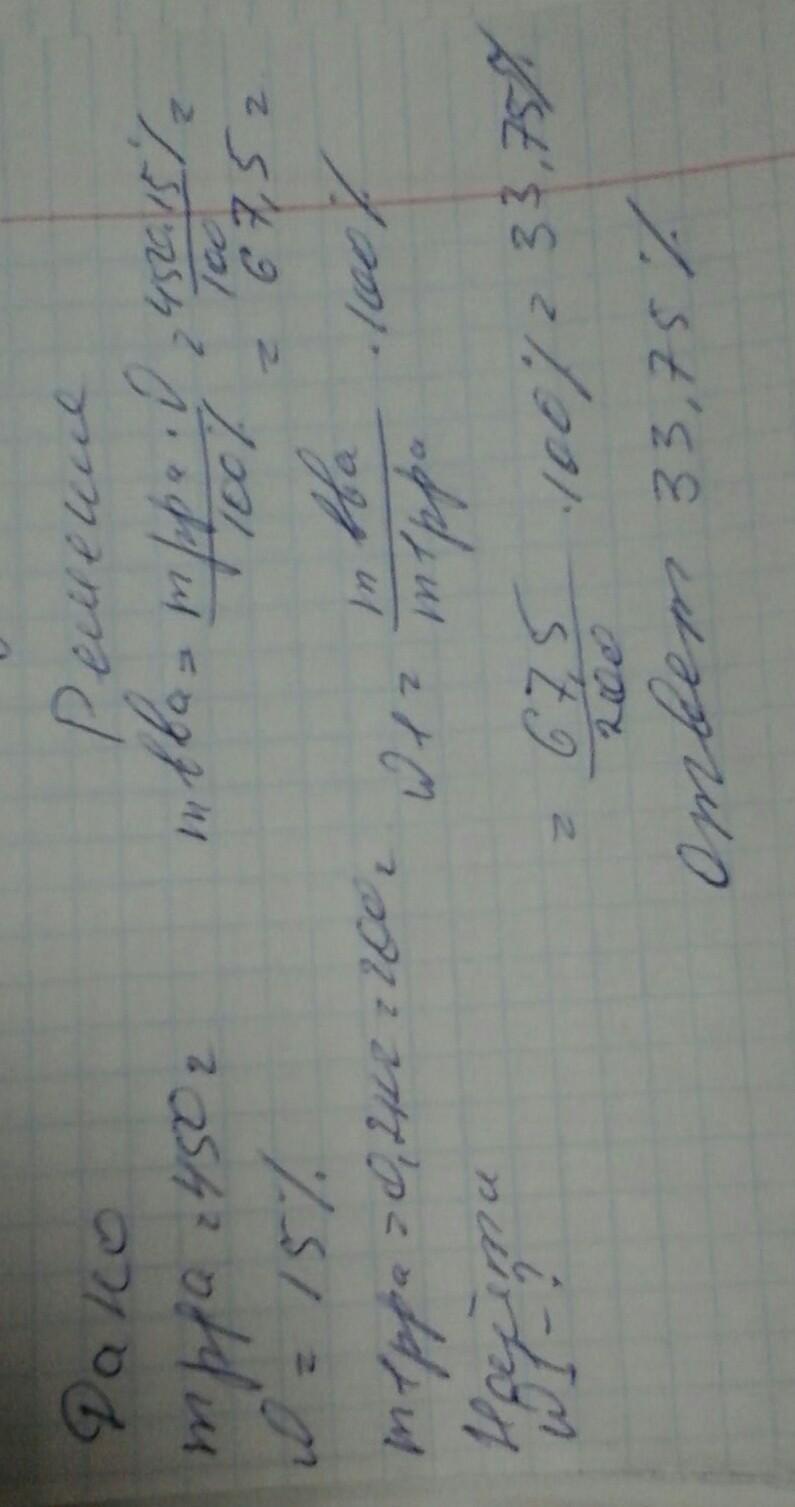 Дано
m рра = 450 г
ω = 15 %
m1 рра = 0,2 кг = 200 г
Найти
ω1 - ?
Решение
m вва = m рра · ω / 100 % = 450 · 15 % / 100 =
= 67,5 г
ω1 = m вва / m1 рра · 100 %
= 67,5 / 200 · 100 % = 33,75 %
Ответ 33,75 %